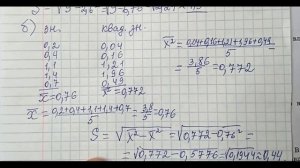 б) зн. квад. зн.
0,2 0,04
0,4 0,16
1,1 1,21
1,4 1,96
0,7 0,49
x̄=0,76 x̄²=0,772
x̄² = (0,04+0,16+1,21+1,96+0,49)/5 =
= 3,86/5 = 0,772
x̄ = (0,2+0,4+1,1+1,4+0,7)/5 = 3,8/5 = 0,76
S = √(x̄² - x̄²) = √(0,772-0,76²) =
= √(0,772-0,5776) = √0,1944 = 0,44